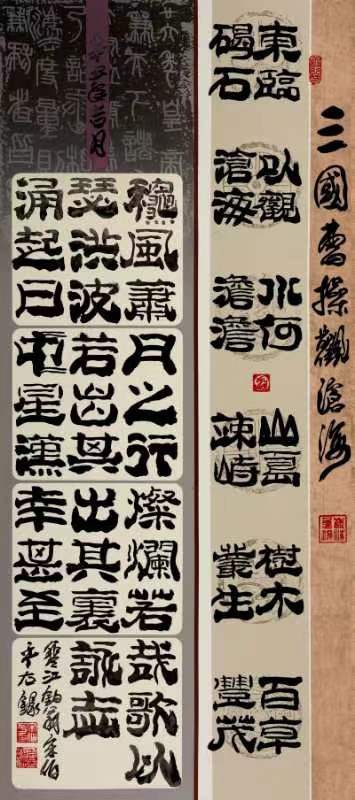 三國曹操觀滄海
東臨碣石
以觀滄海
水何澹澹
山島竦峙
樹木叢生
百草豐茂
穐風蕭
瑟洪波
涌起日
月之行
若出其
中星漢
燦爛若
出其裏
幸甚至
哉歌以
詠志